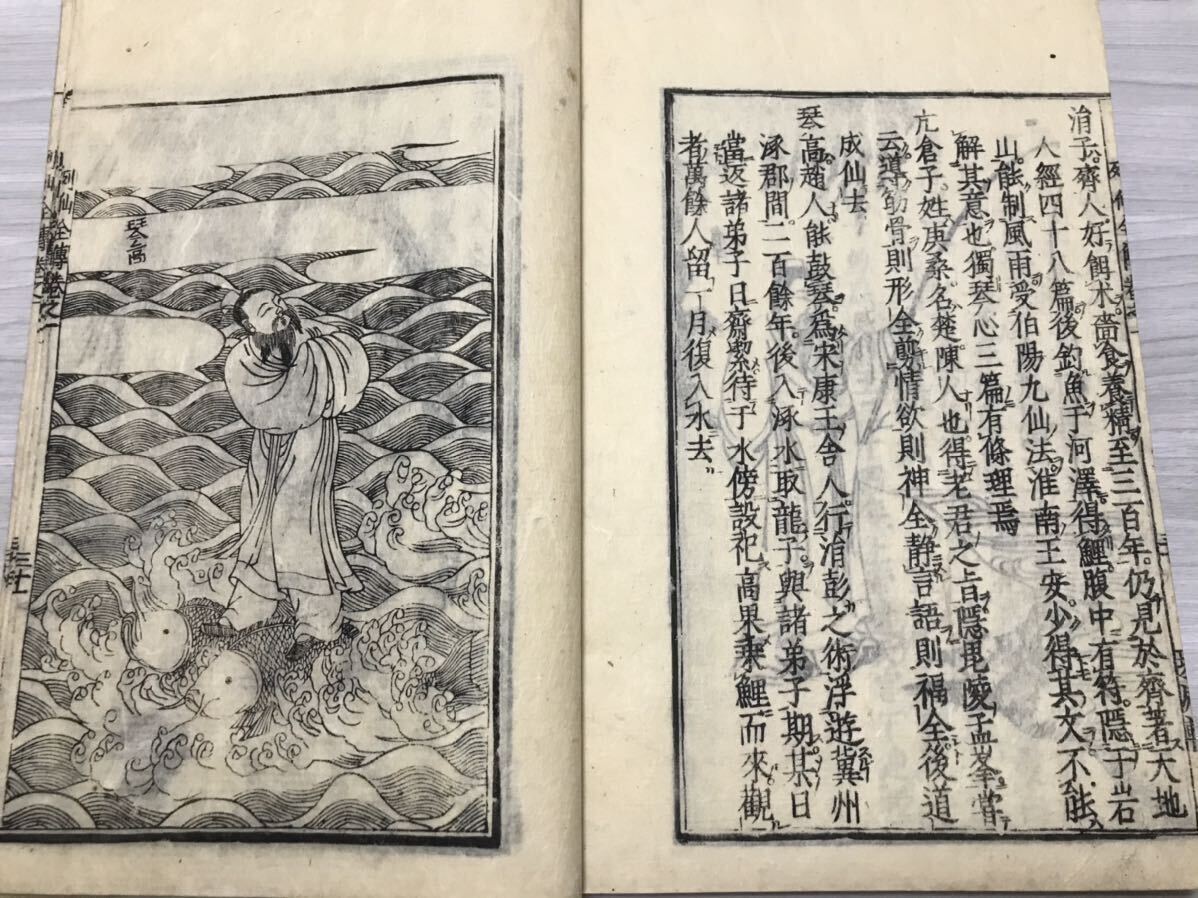 涓子齊人好餌朮嗇食養精至三百年仍見於齊著天地
人經四十八篇後釣魚于河澤得鯉腹中有符隱于岩
山能制風雨受伯陽九仙法淮南王安少得其文不能
解其意也獨琴心三篇有條理焉
亢倉子姓庚桑名楚陳人也得老君之㫖隱毘陵孟峯嘗
云導筋骨則形全剪情欲則神全靜言語則福全後道
成仙去
琴高趙人能鼓琴爲宋康王舍人行涓彭之術浮遊冀州
涿郡間二百餘年後入涿水取龍子與諸弟子期某日
當返諸弟子日齋潔待于水傍設祀高果乘鯉而來觀
者萬餘人留一月復入水去
琴高
列仙全傳卷之一